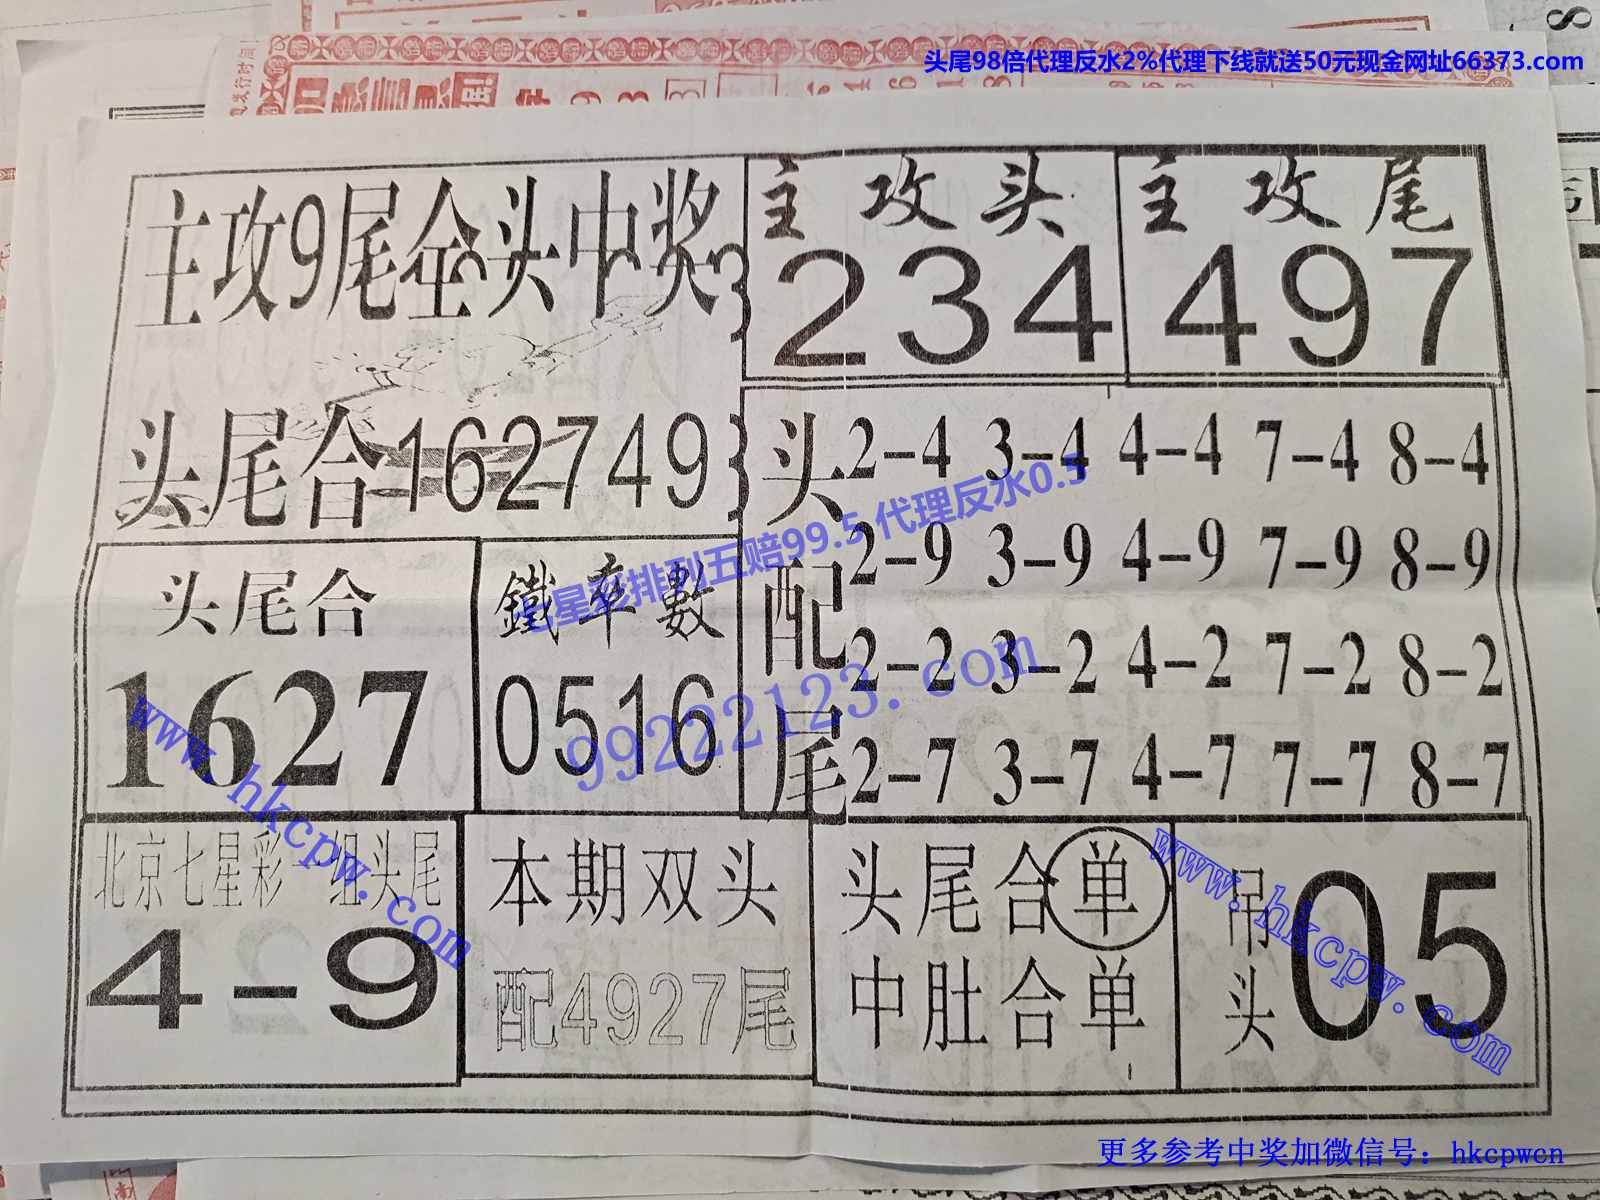 头尾98倍代理反水2%代理下线就送50元现金网址66373.com
主攻9尾全头中奖
主攻头
234
主攻尾
497
头尾合162749
头配尾
2-4 3-4 4-4 7-4 8-4
2-9 3-9 4-9 7-9 8-9
2-2 3-2 4-2 7-2 8-2
2-7 3-7 4-7 7-7 8-7
七星彩排列五赔99.5 代理反水0.5
99222123.com
头尾合
1627
鐵率數
0516
www.hkcpw.com
北京七星彩一组头尾
4-9
本期双头
配4927尾
头尾合单
中肚合单
吊头
05
www.hkcpw.com
更多参考中奖加微信号：hkcpwcn